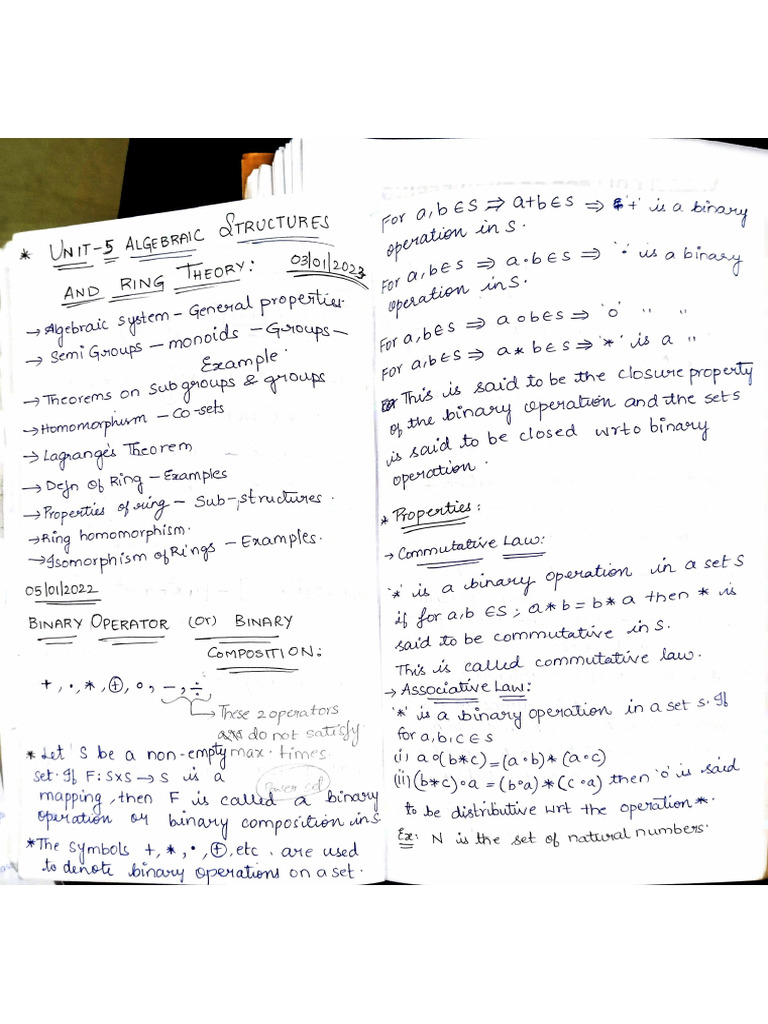 * UNIT-5 ALGEBRAIC STRUCTURES
AND RING THEORY: 03/01/2023
→ Algebraic system - General properties.
→ Semi Groups - monoids - Groups -
Example.
→ Theorems on subgroups & groups
→ Homomorphism - Co-sets
→ Lagrange's Theorem
→ Defn of Ring - Examples
→ Properties of ring - Sub-structures.
→ Ring homomorphism.
→ Isomorphism of Rings - Examples.
05/01/2022
BINARY OPERATOR (or) BINARY
COMPOSITION:
+, ·, *, ⊕, ∘, -, ÷
→ These 2 operators
do not satisfy
max. times.
* Let S be a non-empty
set. If F: S×S → S is a
Power set
mapping, then F is called a binary
operation or binary composition in S
* The symbols +, *, ·, ⊕, etc. are used
to denote binary operations on a set.
For a,b ∈ S ⇒ a+b ∈ S ⇒ '+' is a binary
operation in S.
For a,b ∈ S ⇒ a·b ∈ S ⇒ '·' is a binary
operation in S.
For a,b ∈ S ⇒ a∘b ∈ S ⇒ '∘' " "
For a,b ∈ S ⇒ a*b ∈ S ⇒ '*' is a "
This is said to be the closure property
of the binary operation and the sets
is said to be closed wrto binary
operation.
* Properties:
→ Commutative Law:
'*' is a binary operation in a set S
if for a,b ∈ S; a*b = b*a then * is
said to be commutative in S.
This is called commutative law.
→ Associative Law:
'*' is a binary operation in a set S. If
for a,b,c ∈ S
(i) a∘(b*c) = (a∘b)*(a∘c)
(ii) (b*c)∘a = (b∘a)*(c∘a) then '∘' is said
to be distributive wrt the operation *.
Ex: N is the set of natural numbers.